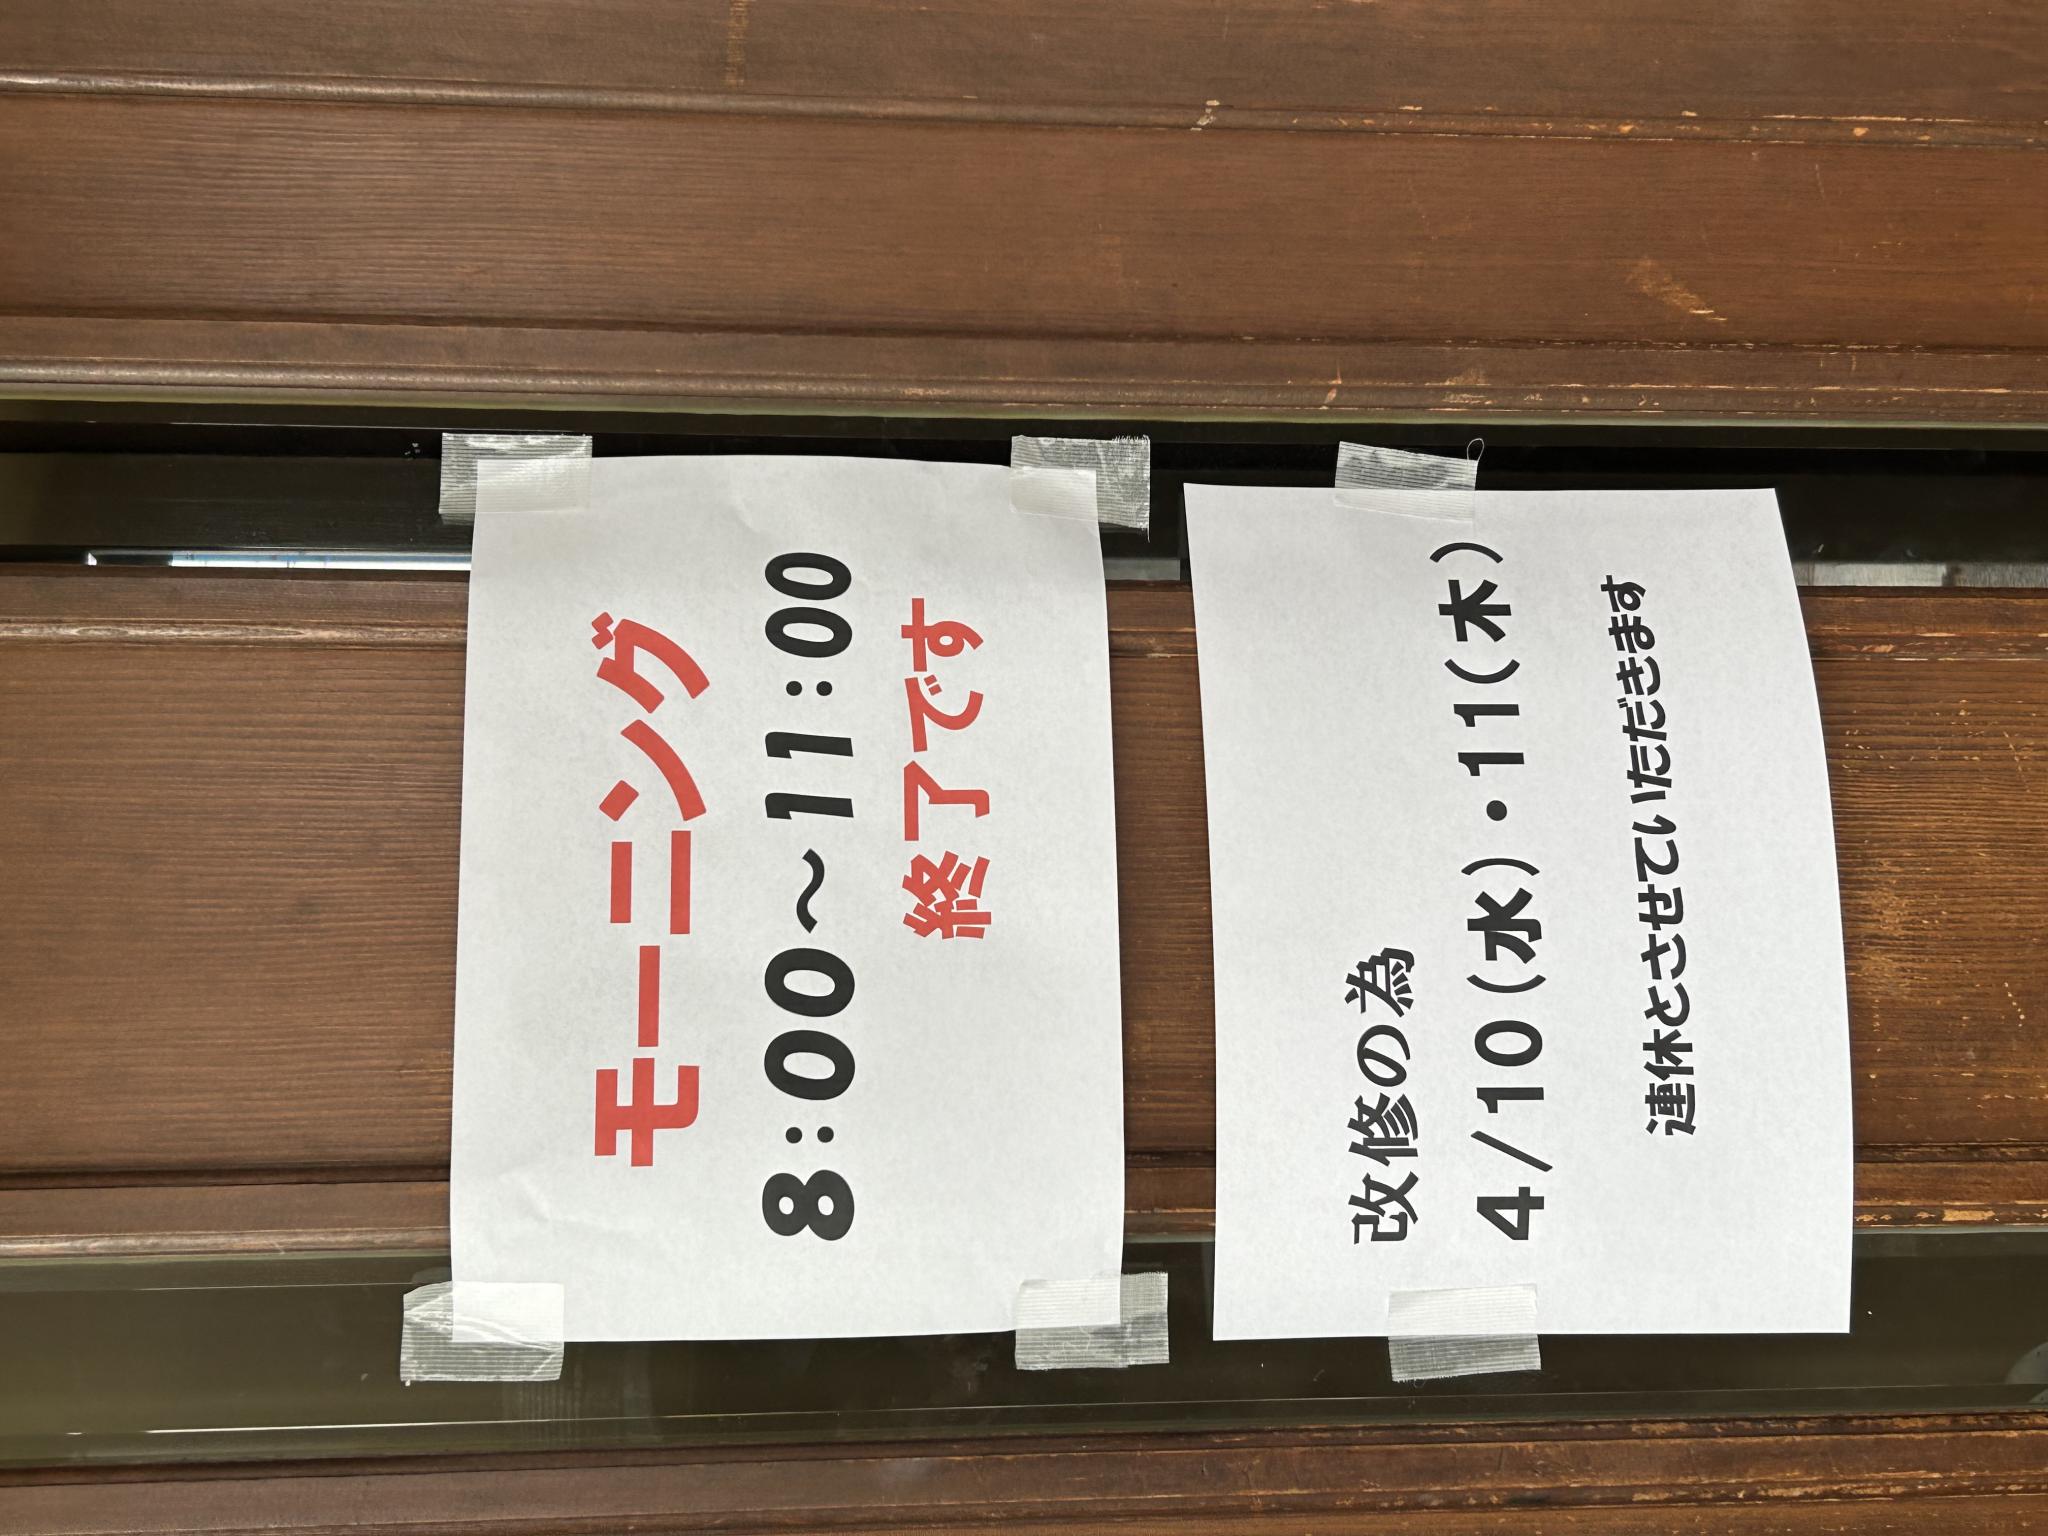 モーニング
8:00～11:00
終了です
改修の為
4/10(水)・11(木)
連休とさせていただきます